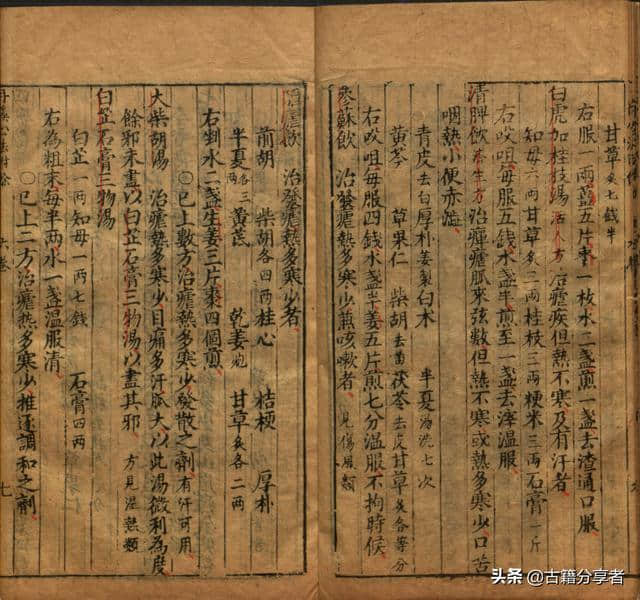 甘草炙七錢半
右服一兩薑五片棗一枚水二盞煎一盞去渣通口服
白虎加桂枝湯 活人方 治瘧疾但熱不寒及有汗者
知母六兩甘草炙二兩桂枝三兩粳米三兩石膏一斤
右㕮咀每服五錢水盞半煎至一盞去滓溫服
清脾飲 濟生方 治癉瘧脈來弦數但熱不寒或熱多寒少口苦
咽熱小便赤澁
青皮去白厚朴姜製白术 半夏湯洗七次
黃芩 草果仁 柴胡去苗茯苓去皮甘草炙各等分
右㕮咀每服四錢水盞半姜五片煎七分溫服不拘時候
參蘇飲 治發瘧熱多寒少蒸咳嗽者 見傷風類
飲 治發瘧熱多寒少者
前胡 柴胡各四兩桂心 桔梗 厚朴
半夏各三兩黃芪 乾姜炮 甘草炙各二兩
右剉水二盞生姜三片棗四個煎
○已上數方治瘧熱多寒少發散之劑有汗可用
大柴胡湯 治瘧熱多寒少目痛多汗脈大以此湯微利為度
餘邪未盡以白芷石膏三物湯以盡其邪 方見湿熱類
白芷石膏三物湯
白芷一兩知母一兩七錢 石膏四兩
右為粗末每半兩水一盞溫服清
○已上二方治瘧熱多寒少推逐調和之劑
六卷 七
头条 @古籍分享者